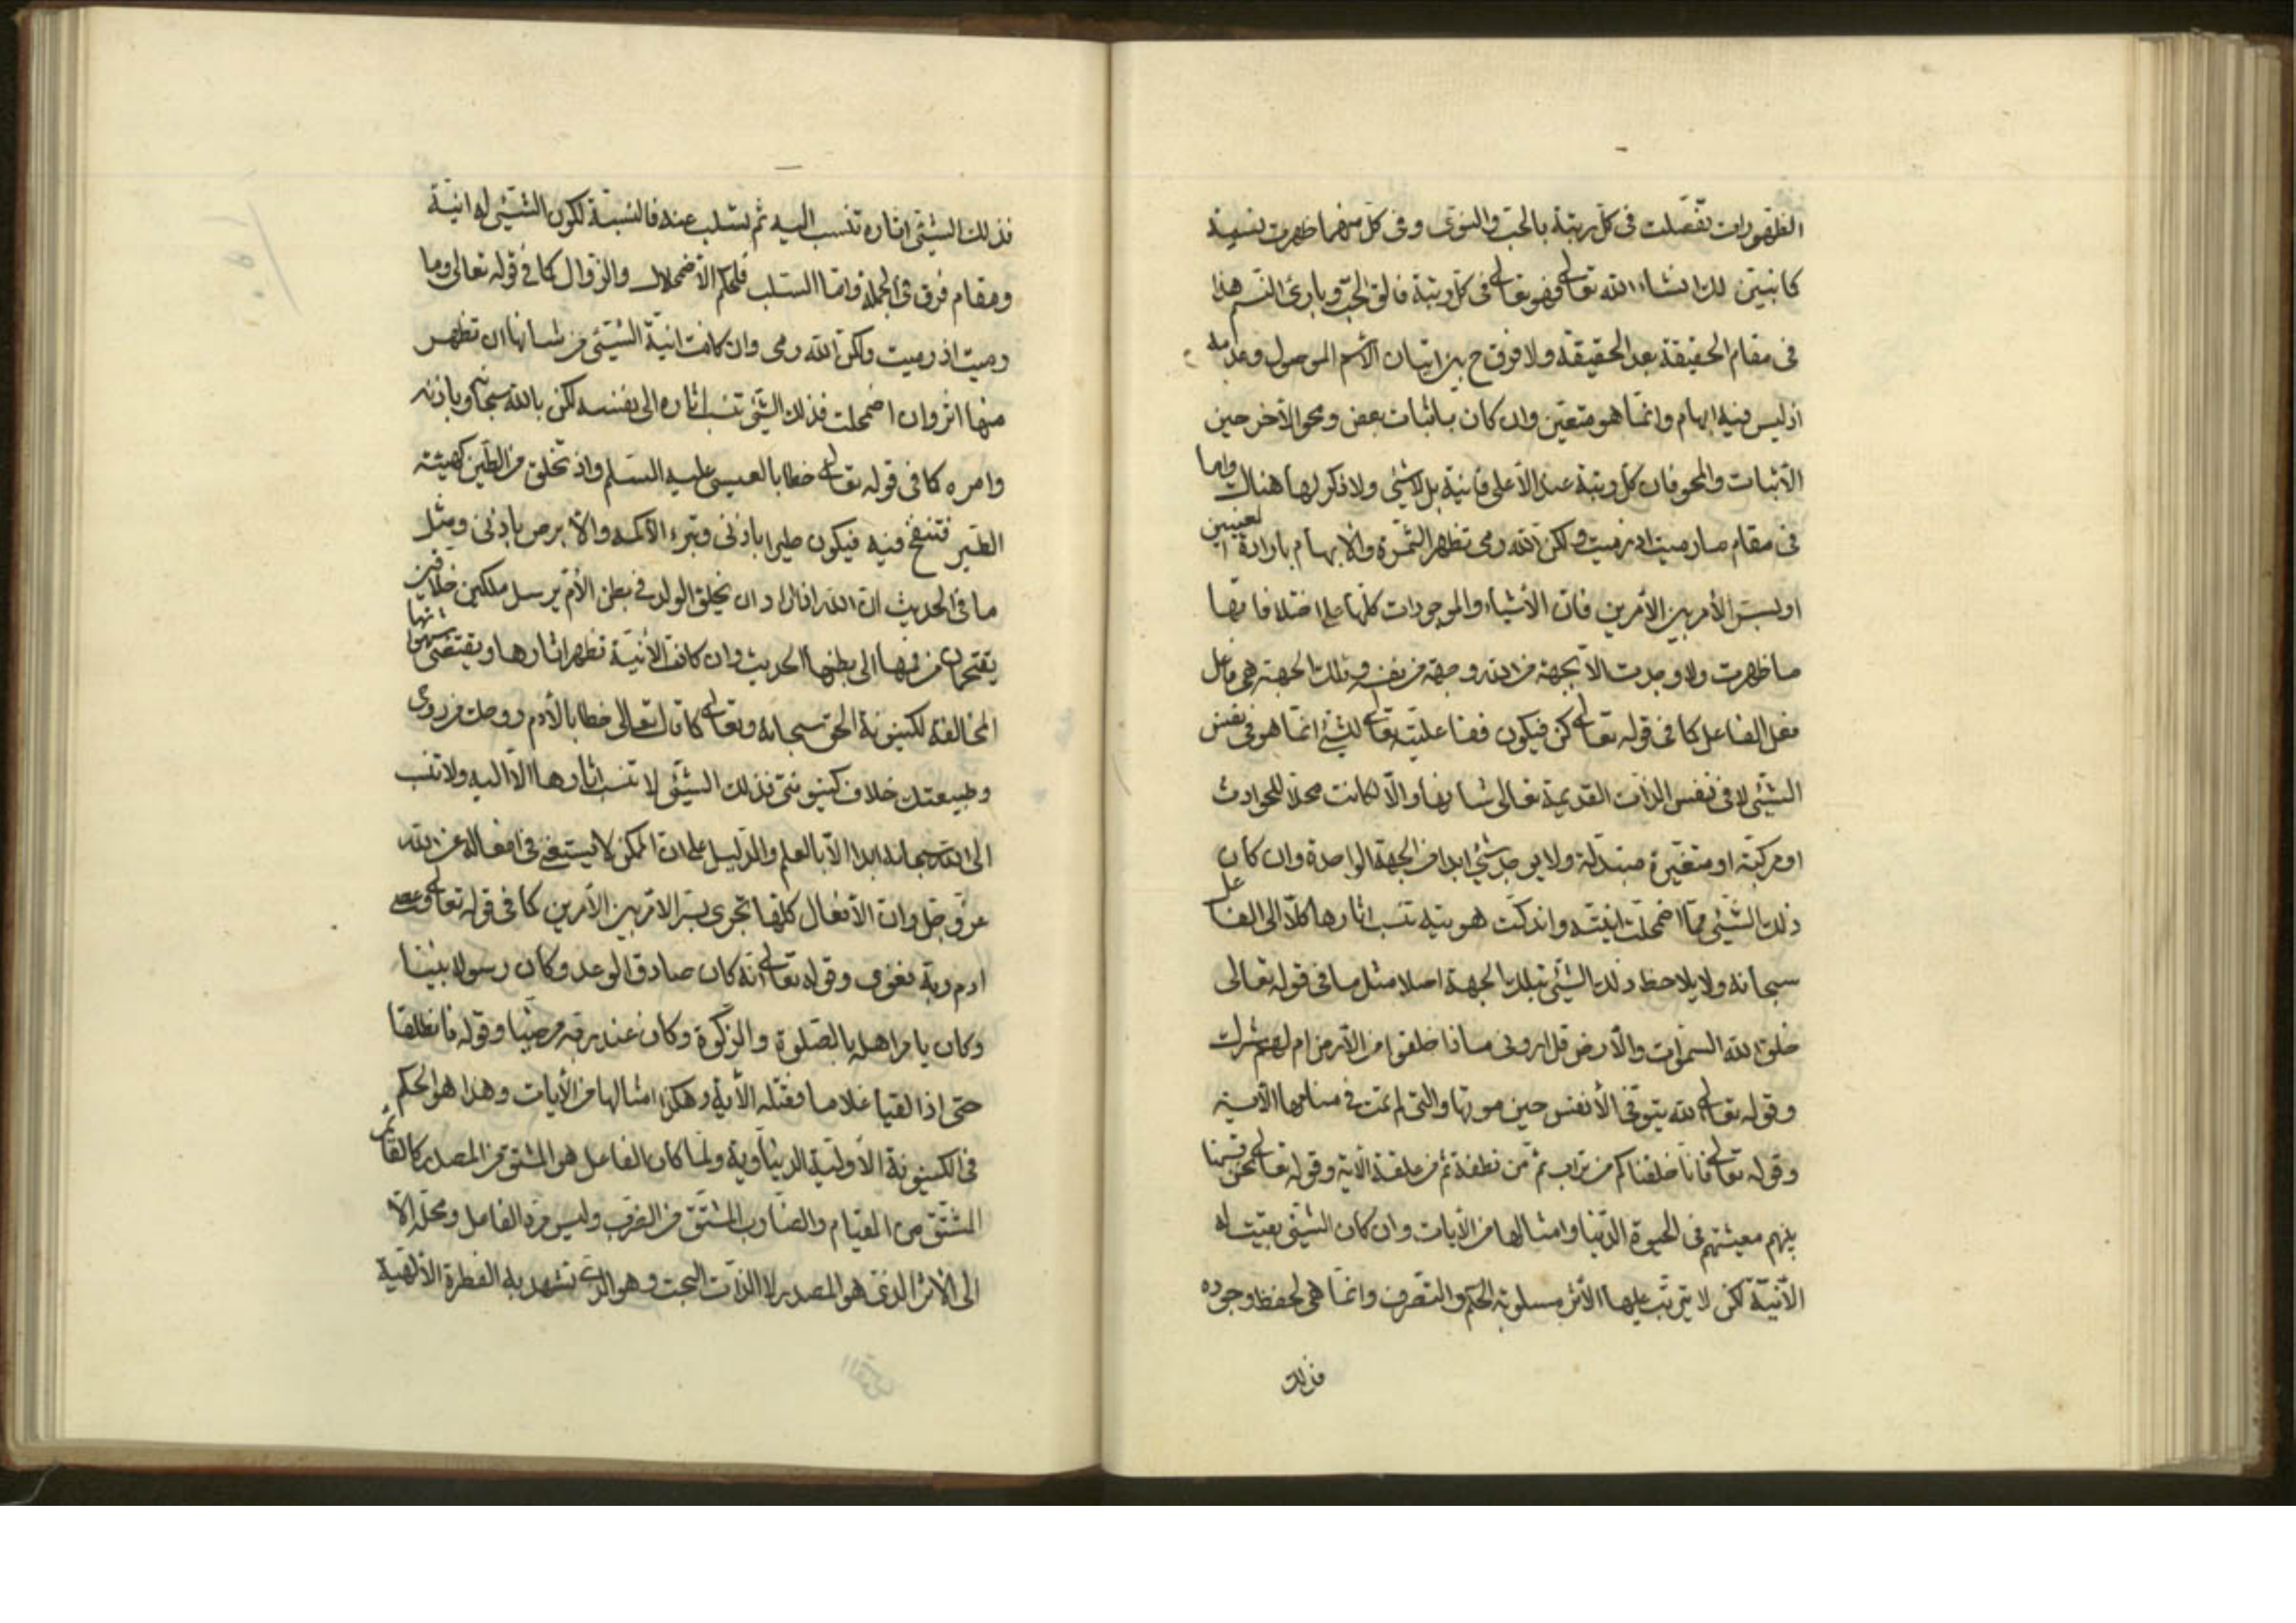 الظهورات تفصّلت فى كلّ رتبة بالحبّ والنوى وفى كلّ منهما ظهرت نسمة
كما نبيّن لك انشاء الله تعالى فهو تعالى فى كلّ رتبة فالق الحبّ وبارئ النسم هذا
فى مقام الحقيقة بعد الحقيقة ولا فرق ح بين اتيان الاسم الموصول وعدمه
اذ ليس فيه ابهام وانّما هو متعيّن وان كان باثبات بعض ومحو الآخر حين
الأثبات والمحو فان كلّ رتبة عند الأعلى فانية بل لاشئ ولا ذكر لها هناك واما
فى مقام مارميت اذ رميت ولكنّ الله رمى تظهر الثمرة والابهام بارادة التعيين
او لسرّ الأمر بين الأمرين فانّ الأشياء والموجودات كلّها على اختلافاتها
ما ظهرت ولا وجدت الّا بجهة من الله وجهة من نفسه وتلك الجهة هى فاعل
فعل الفاعل كما فى قوله تعالى كن فيكون ففاعليّته تعالى لشئ انّما هو فى نفس
الشئ لا فى نفس الذات القديمة تعالى شانها والّا لكانت محلّا للحوادث
او مركبّة او متغيّرة متبدلة ولا يوجد شئ ابدا من الجهة الواحدة وان كان
ذلك الشئ ممّا اضمحلت انيّته واندكّت هويته تنسب اثارها كلّا الى الفاعل
سبحانه ولا يلاحظ ذلك الشئ بتلك الجهة اصلا مثل ما فى قوله تعالى
خلق الله السموات والأرض قل ارونى ماذا خلقوا من الأرض ام لهم شرك
وقوله تعالى الله يتوفى الأنفس حين موتها والتى لم تمت فى منامها الآية
وقوله تعالى فانّا خلقناكم من تراب ثم من نطفة ثم من علقة الآية وقوله تعالى نحن قسمنا
بينهم معيشتهم فى الحيوة الدّنيا وامثالها من الأيات وان كان الشئ بقيت له
الأنّية لكن لا يترتّب عليها الأثر مسلوبة الحكم والتصّرف وانّما هى لحفظ وجوده
فذلك
فذلك الشئ اثاره تنسب اليه ثم تسلب عنه فالنسبة لكون الشئ له انيّة
ومقام فرق فى الجملة وامّا السلب فلحكم الأضمحلال والزوال كما فى قوله تعالى وما
رميت اذ رميت ولكنّ الله رمى وان كانت انيّة الشئ من شانها ان تظهر
منها اثر وان اضمحلت فذلك الشئ تنسب اثاره الى نفسه لكن بالله سبحانه وباذنه
وامره كما فى قوله تعالى خطابا لعيسى عليه السلم واذ تخلق من الطين كهيئة
الطير فتنفخ فيه فيكون طيرا باذنى وتبرء الأكمه والأبرص باذنى ومثل
ما فى الحديث انّ الله اذا اراد ان يخلق الولد فى بطن الأم يرسل ملكين خلاقين
يقتحمان من فمها الى بطنها الحديث وان كانت الأنيّة تظهر اثارها ويقتضى شهواتها
المخالفة لكينونة الحق سبحانه وتعالى كما قال تعالى خطابا لأدم روحك من روحى
وطبيعتك خلاف كينونتى فذلك الشئ لا تنسب اثارها الّا اليه ولا تنسب
الى الله سبحانه ابدا الّا بالعلم والدليل على ان الممكن لا يستغنى فى افعاله عن الله
عزّ وجلّ وان الأفعال كلها تجرى بسرّ الأمر بين الأمرين كما فى قوله تعالى وعصى
ادم ربّه فغوى وقوله تعالى انّه كان صادق الوعد وكان رسولا نبيّا
وكان يامر اهله بالصّلوة والزكوة وكان عند ربّه مرضيّا وقوله فانطلقا
حتى اذا لقيا غلاما فقتله الأية وهكذا امثالها من الأيات وهذا هو الحكم
فى الكينونة الأولية الدنياوية ولمّا كان الفاعل هو المشتق من المصدر كالقائم
المشتّق من القيام والضارب المشتّق من الضرب وليس مردّ الفاعل ومحلّه الّا
الى الأثر الذى هو المصدر لا الذات البحت وهو الذى تشهد به الفطرة الألهية